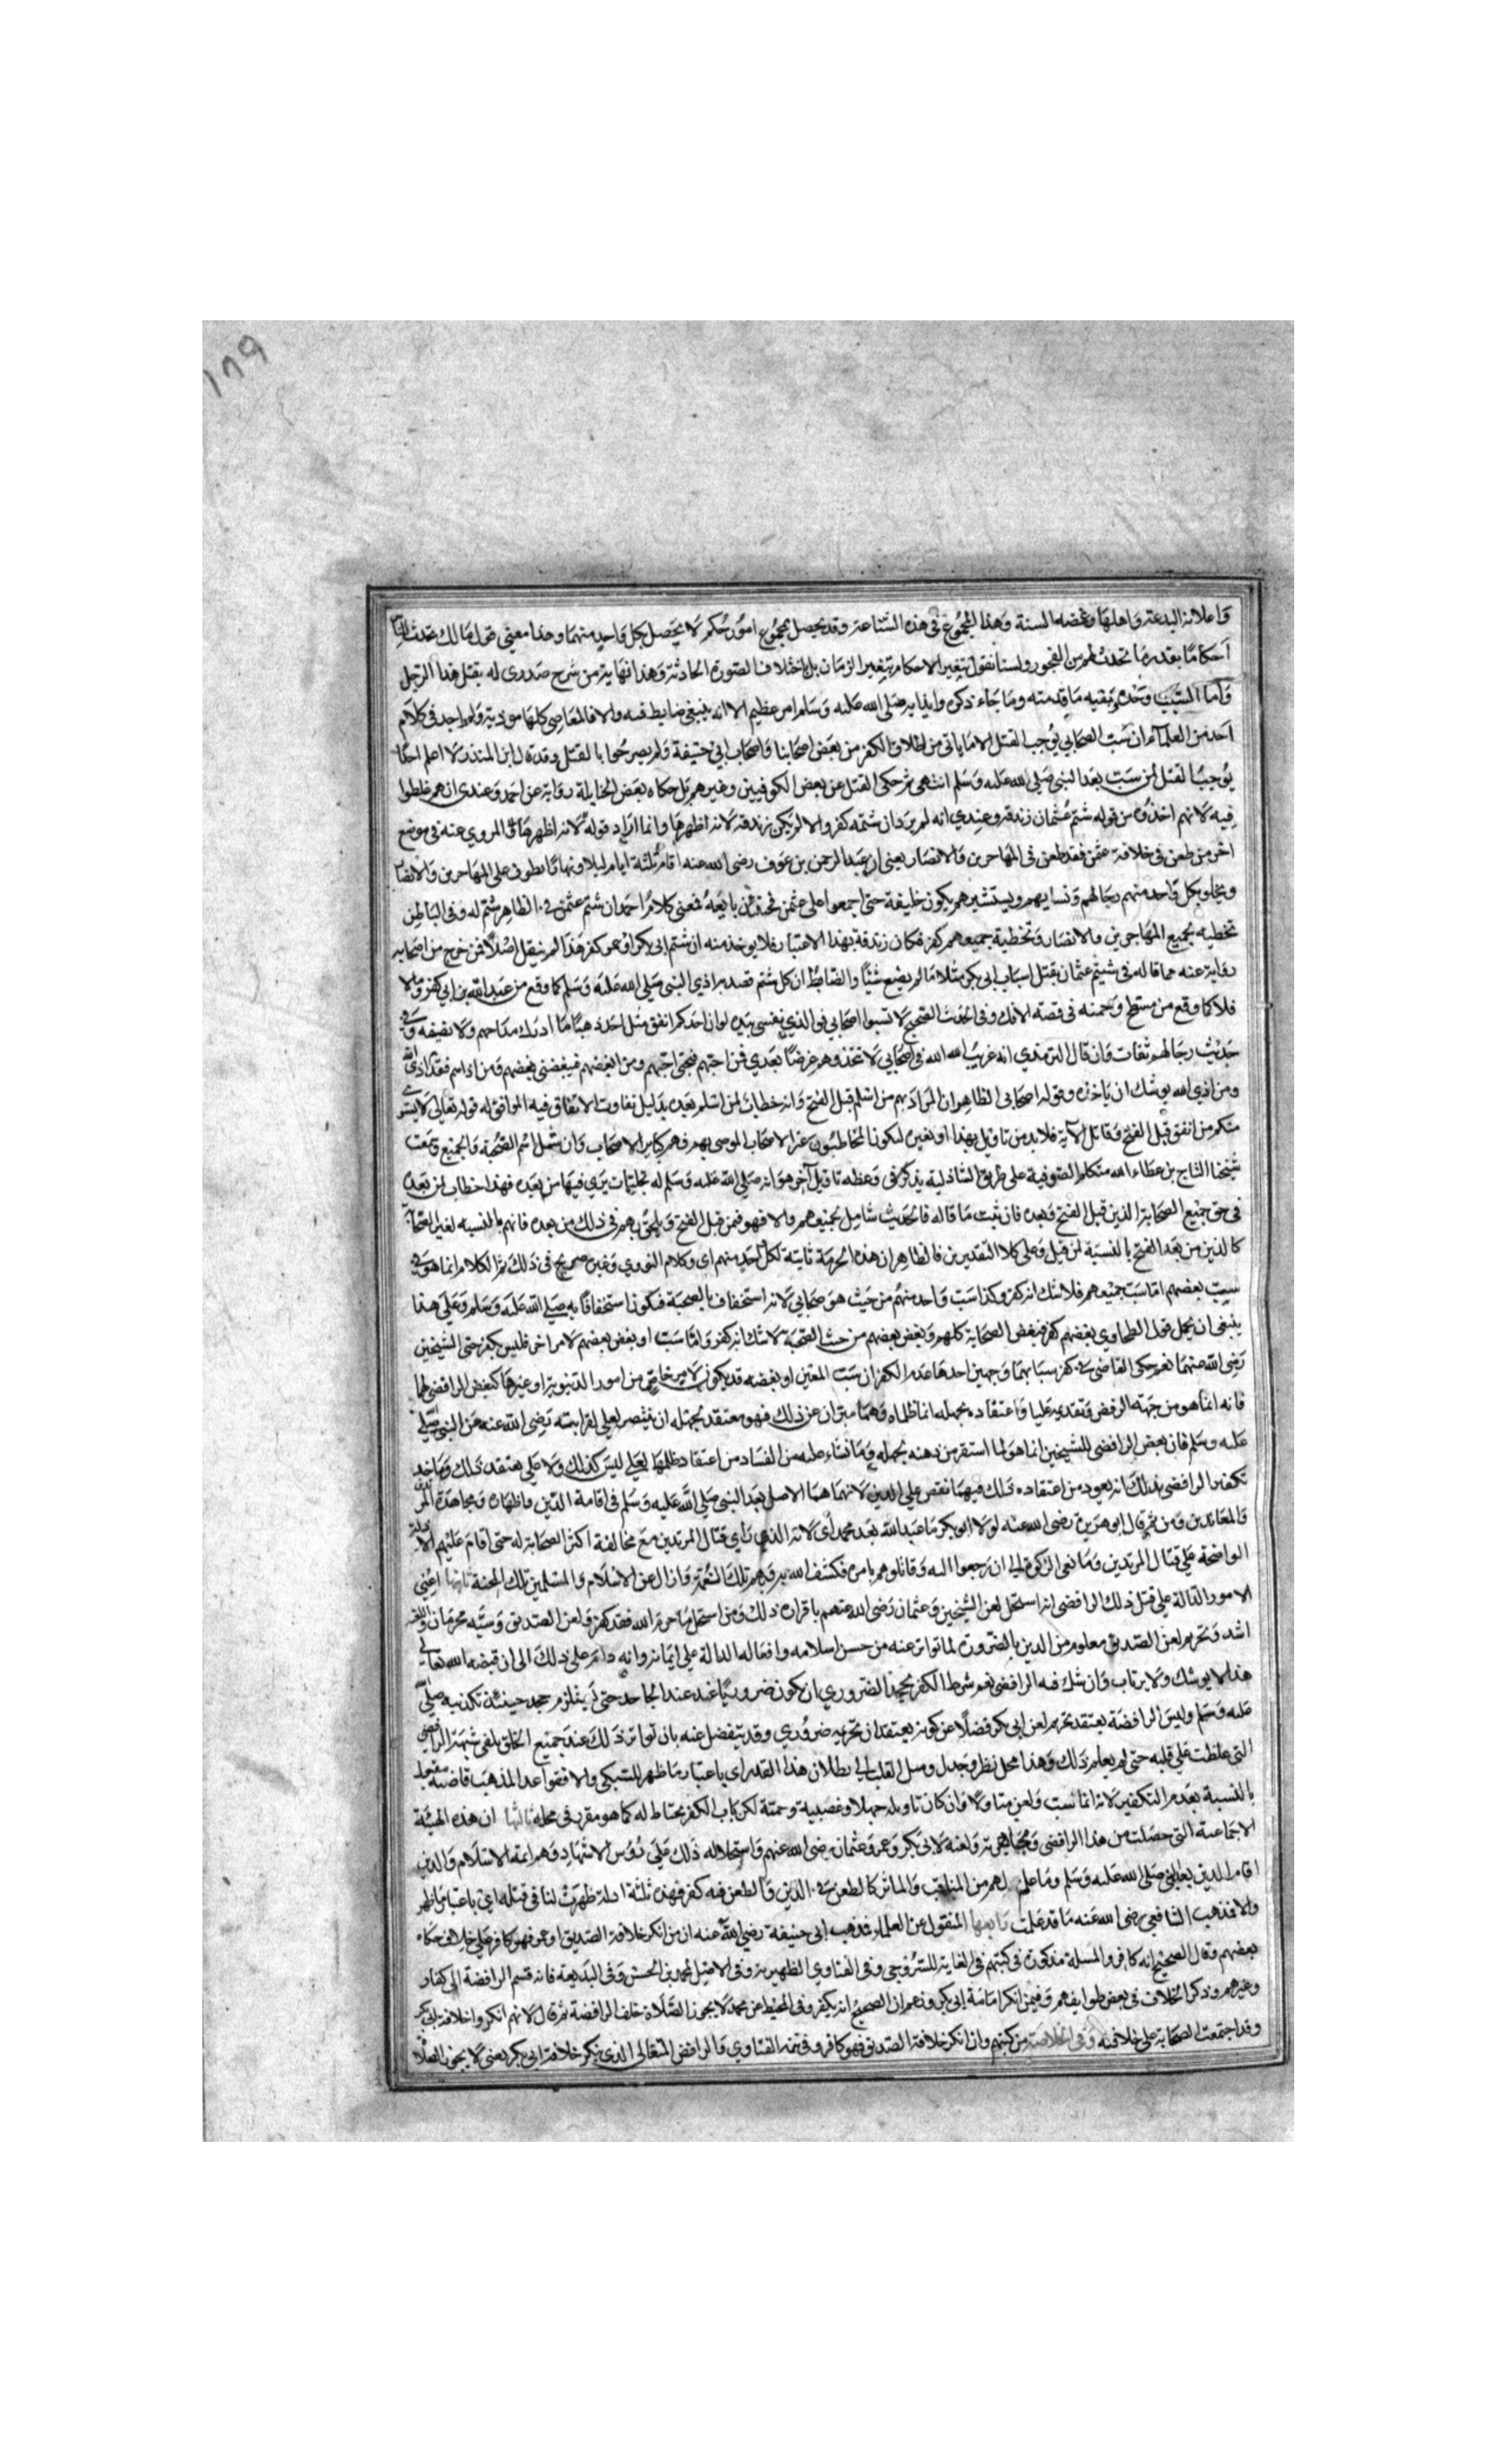 ١٨٩
واعلانه البدعة واهلها وغضه السنة وهذا المجموع في هذه الشناعة وقد يحصل بمجموع امور حكم لا يحصل بكل واحد منهما وهذا معنى قول مالك تحدث للناس
احكاما بقدر ما تحدث لهم من الفجور ولسنا نقول تتغير الاحكام بتغير الزمان بل باختلاف الصورة الحادثة وهذا نهاية من شرح صدري له بقتل هذا الرجل
واما السب وحده ففيه ما قدمته وما جاء ذكره وايذايه صلى الله عليه وسلم امر عظيم الا انه ينبغي ضابط فيه والا فالمعاصي كلها موذية ولم اجد في كلام
احد من العلماء ان سب الصحابي يوجب القتل الا ما ياتي من اطلاق الكفر من بعض اصحابنا واصحاب ابي حنيفة ولم يصرحوا بالقتل وقد قال ابن المنذر لا اعلم احدا
يوجب القتل لمن سب بعد النبي صلى الله عليه وسلم انتهى ثم حكى القتل عن بعض الكوفيين وغيرهم بل حكاه بعض الحنابلة رواية عن احمد وعندي انهم غلطوا
فيه لانهم اخذوه من قوله شتم عثمان زندقة وعندي انه لم يرد ان شتمه كفر والا لم يكن زندقة لانه اظهرها وانما اراد قوله المروي عنه في موضع
اخر من طعن في خلافة عثمن فقد طعن في المهاجرين والانصار يعني ان عبد الرحمن بن عوف رضي الله عنه اقام ثلثة ايام ليلا ونهارا يطوف على المهاجرين والانصار
ويخلو بكل واحد منهم رجالهم ونسايهم ويستشيرهم فيمن يكون خليفة حتى اجمعوا على عثمن فحينئذ بايعه فمعنى كلام احمد ان شتم عثمن في الظاهر شتم له وفي الباطن
تخطيه لجميع المهاجرين والانصار وتخطية جميعهم كفر فكان زندقة بهذا الاعتبار فلا يوخذ منه ان شتم ابي بكر او عمر كفر هذا لم ينقل اصلا فمن خرج من اصحابه
رواية عنه مما قاله في شتم عثمان بقتل اسباب ابي بكر مثلا ما لم يصنع شيئا والضابط ان كل شتم قصد به اذي النبي صلى الله عليه وسلم كما وقع من عبد الله بن ابي كفر وما لا
فلا كما وقع من مسطح وحمنه في قصة الافك وفي الحديث الصحيح لا تسبوا اصحابي فوالذي نفسي بيده لو ان احدكم انفق مثل احد ذهبا ما ادرك مد احدهم ولا نصيفه وفي
حديث رجاله ثقات وان قال الترمذي انه غريب الله الله في اصحابي لا تتخذوهم غرضا بعدي فمن احبهم فبحبي احبهم ومن ابغضهم فببغضي ابغضهم ومن اذاهم فقد اذى الله
ومن اذي الله يوشك ان ياخذه وقوله اصحابي الظاهر ان المراد بهم من اسلم قبل الفتح وانه خطاب لمن اسلم بعده بدليل تفاوت الانفاق فيه الموافق له قوله تعالى لا يستوي
منكم من انفق قبل الفتح وقاتل الاية فلا بد من تاويل بهذا او بغيره ليكون المخاطبون غير الاصحاب الموصى بهم فهم كباير الاصحاب وان شمل اسم الصحبة الجميع وسمعت
شيخنا التاج بن عطاء الله متكلم الصوفية على طريق الشاذلية يذكر في وعظه تاويلا آخر هو انه صلى الله عليه وسلم له تجليات يري فيها من بعده فهذا خطاب لمن بعده
في حق جميع الصحابة الذين قبل الفتح وبعده فان ثبت ما قاله فالحديث شامل لجميعهم والا فهو فيمن قبل الفتح ويلحق بهم في ذلك من بعده فانهم بالنسبة لغير الصحابة
كالذين من بعد الفتح بالنسبة لمن قبل وعلى كلا التقديرين فالظاهر ان هذه الحرمة ثابتة لكل احد منهم اي وكلام النووي وغيره صريح في ذلك ثم الكلام انما هو في
سب بعضهم اما سب جميعهم فلا شك انه كفر وكذا سب واحد منهم من حيث هو صحابي لانه استخفاف بالصحبة فيكون استخفافا به صلى الله عليه وسلم وعلى هذا
ينبغي ان يحمل قول الطحاوي بغضهم كفر فبغض الصحابة كلهم وبغض بعضهم من حيث الصحبة لا شك انه كفر واما سب او بغض بعضهم لامر اخر فليس بكفر حتى الشيخين
رضي الله عنهما نعم حكى القاضي في كفر سابهما وجهين احدهما عدم الكفر ان سب المعين او بغضه قد يكون لامر خاص من امور الدنيوية او غيرها كبغض الرافضي لهما
فانه انما هو من جهة الرفض وتقديمه عليا واعتقاده بجهله انما ظلماه وهما مبران عن ذلك فهو معتقد بجهله ان ينتصر لعلي لقرابته رضي الله عنه من النبي صلى
عليه وسلم فان بعض الرافضي للشيخين انما هو لما استقر من ذهنه بجهله وما نشاء عليه من الفساد من اعتقاد ظلمها لعلي ليس كذلك ولا علي يعتقد ذلك وماخذ
تكفير الرافضي بذلك انه يعود من اعتقاده ذلك فيهما نقص على الدين لانهما هما الاصل بعد النبي صلى الله عليه وسلم في اقامة الدين واظهاره ومجاهدة المرتدين
والمعاندين ومن ثم قال ابو هريرة رضي الله عنه لولا ابو بكر ما عبد الله بعد محمد اي لانه الذي راي قتال المرتدين مع مخالفة اكثر الصحابة له حتى اقام عليهم الادلة
الواضحة على قتال المرتدين ومانعي الزكوة الى ان رجعوا اليه وقاتلوهم بامره فكشف الله به وبهم تلك الغمة وازال عن الاسلام والمسلمين تلك المحنة ثانيها اعني
الامور الدالة على قتل ذلك الرافضي انه استحل لعن الشيخين وعثمان رضي الله عنهم باقراره ذلك ومن استحل ما حرم الله فقد كفر ولعن الصديق وسبه محرمان واللعن
اشد وتحريم لعن الصديق معلوم من الدين بالضرورة لما تواتر عنه من حسن اسلامه وافعاله الدالة على ايمانه وانه دام على ذلك الى ان قبضه الله تعالى
هذا لا يوشك ولا يرتاب وان شك فيه الرافضي نعم شرط الكفر بجحد الضروري ان يكون ضروريا عند عند الجاحد حتى يستلزم جحد حينئذ تكذيبه صلى الله
عليه وسلم وليس الرافضة يعتقد تحريم لعن ابي بكر فضلا عن كونه يعتقد ان تحريمه ضروري وقد ينفصل عنه بان تواتر ذلك عند جميع الخلق يلغي شبهة الرافضي
التي غلظت على قلبه حتى لم يعلم ذلك وهذا محل نظر وجدل وميل القلب الى بطلان هذا القدر اي باعتبار ما ظهر للسبكي والا فقواعد المذهب قاضية بقبوله
بالنسبة بعدم التكفير لانه انما يسب ويلعن متاولا وان كان تاويله جهلا وعصبية وحمية لكن باب الكفر يحتاط له كما هو مقرر في محله ثالثها ان هذه الهيئة
الاجتماعية التي حصلت من هذا الرافضي ومجاهرته ولعنه لابي بكر وعمر وعثمان رضي الله عنهم واستحلاله ذلك على رؤس الاشهاد وهم ائمة الاسلام والذين
اقاموا الدين بعد النبي صلى الله عليه وسلم وما علم لهم من المناقب والماثر كالطعن في الدين والطعن فيه كفر فهذه ثلثة ادلة ظهرت لنا في قتله اي باعتبار ما ظهر
والا فمذهب الشافعي رضي الله عنه ما قد علمت رابعها المنقول عن العلماء فمذهب ابي حنيفة رضي الله عنه ان من انكر خلافة الصديق او عمر فهو كافر على خلاف حكاه
بعضهم وقال الصحيح انه كافر والمسلة مذكورة في كتبهم في الغاية للسروجي وفي الفتاوي الظهيرية وفي الاصل لمحمد بن الحسن وفي البديعه فانه قسم الرافضة الى كفار
وغيرهم وذكر الخلاف في بعض طوايفهم وفيمن انكر امامة ابي بكر وزعم ان الصحيح انه يكفر وفي المحيط عن محمد لا يجوز الصلاة خلف الرافضة ثم قال لانهم انكروا خلافة ابي بكر
وقد اجتمعت الصحابة على خلافته وفي الخلاصة من كتبهم وان انكر خلافة الصديق فهو كافر وفي تتمة الفتاوي والرافضي المتغالي الذي ينكر خلافة ابي بكر يعني لا يجوز الصلاة